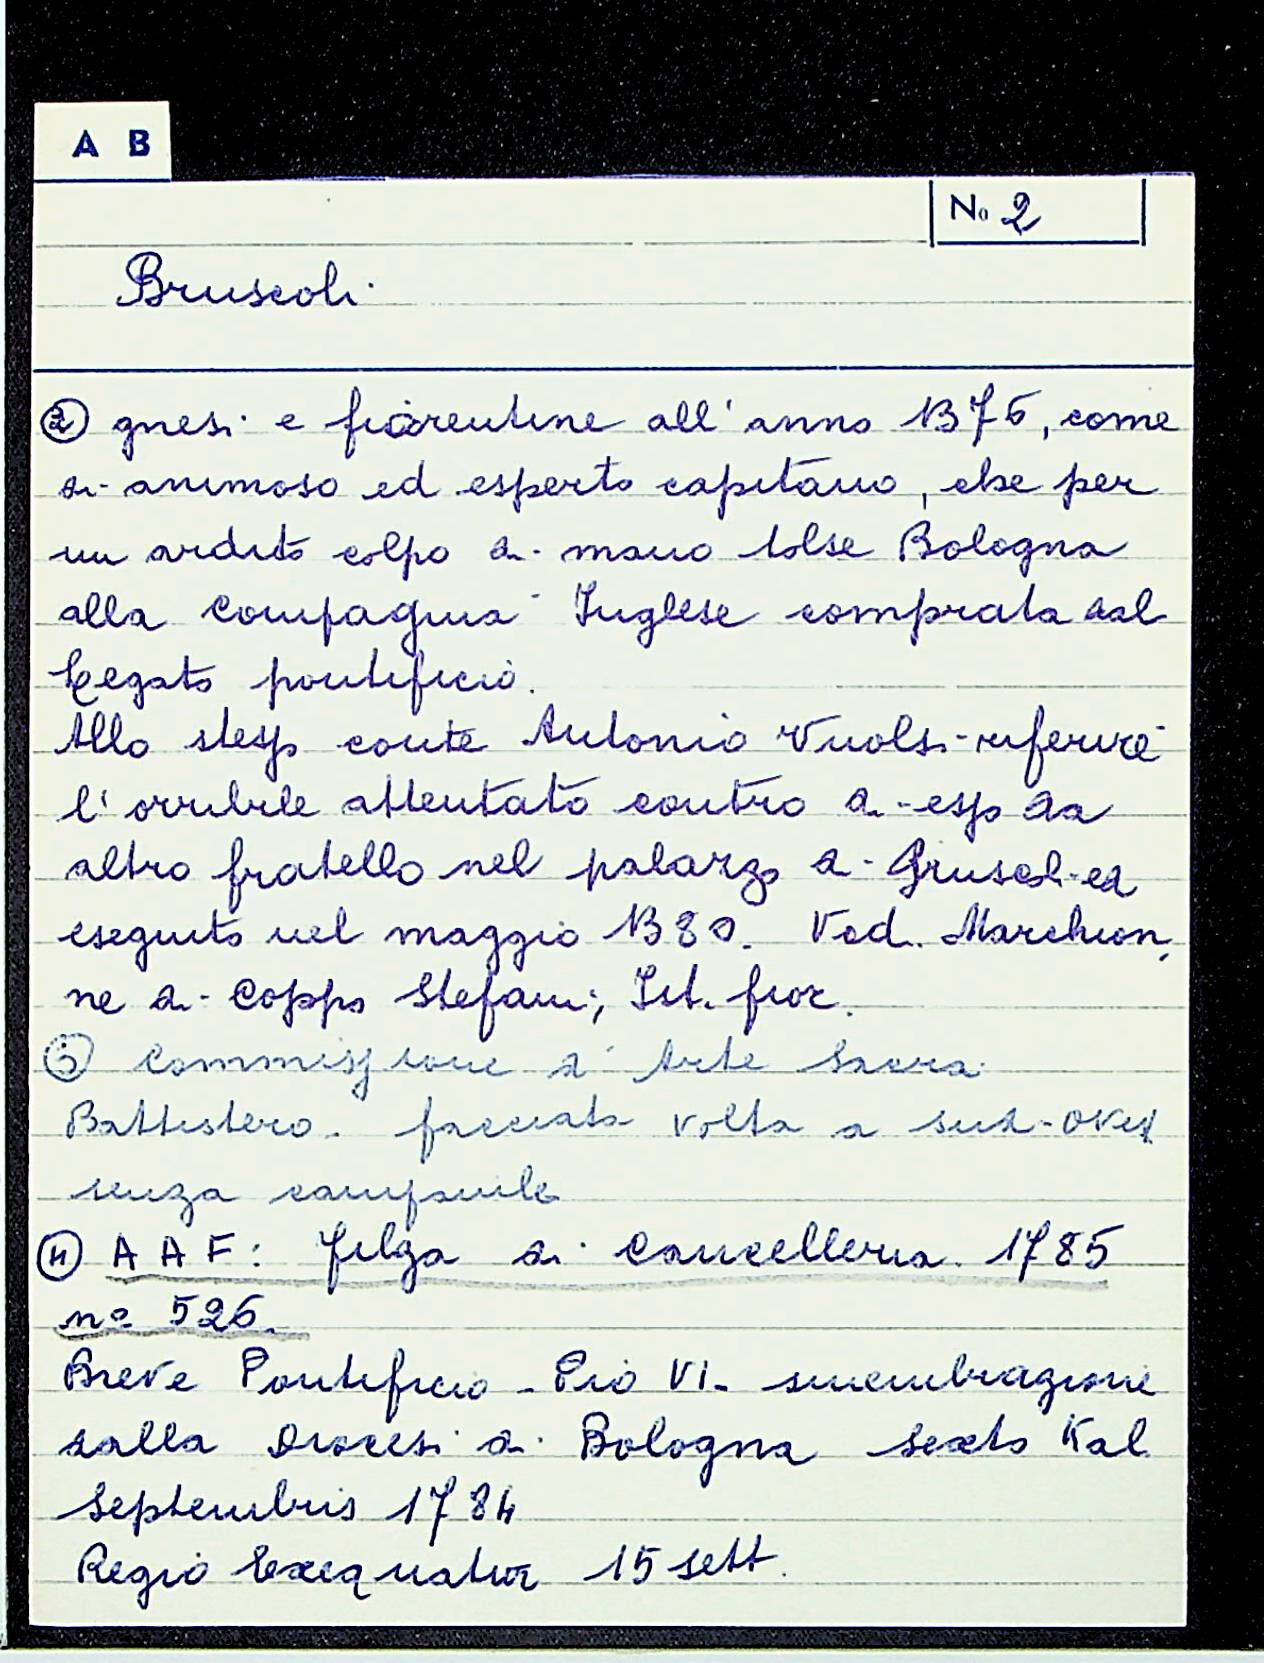 A B
No 2
Bruscoli
② gnesi e fiorentine all'anno 1376, come
di animoso ed esperto capitano, che per
un ardito colpo di mano tolse Bologna
alla Compagnia Inglese comprata dal
Legato pontificio.
Allo stesso conte Antonio vuolsi riferire
l'orribile attentato contro di esso da
altro fratello nel palazzo di Bruscoli ed
eseguito nel maggio 1380. Ved. Marchion,
ne di Coppo Stefani; Ist. fior.
③ Commissione d'Arte Sacra
Battistero. facciata volta a sud-ovest
senza campanile
④ A A F: Filza di Cancelleria. 1785
nº 526.
Breve Pontificio - Pio VI - smembrazione
dalla Diocesi di Bologna sexto Kal
Septembris 1784
Regio Exequatur 15 sett.